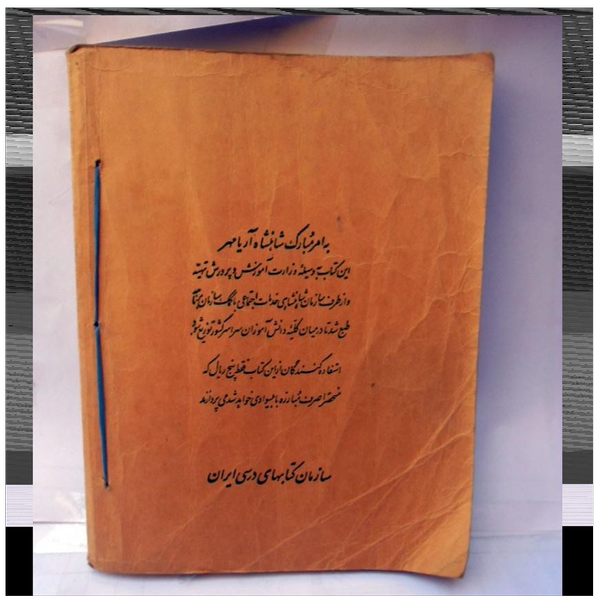 به امر مبارک شاهنشاه آریامهر
این کتاب بوسیلهٔ وزارت آموزش و پرورش تهیه
و از طرف سازمان شاهنشاهی خدمات اجتماعی با کمک سازمان برنامه
طبع شد تا در میان کلیهٔ دانش آموزان سراسر کشور توزیع شود.
استفاده کنندگان از این کتاب فقط پنج ریال که
منحصراً صرف مبارزه با بیسوادی خواهد شد می پردازند
سازمان کتابهای درسی ایران